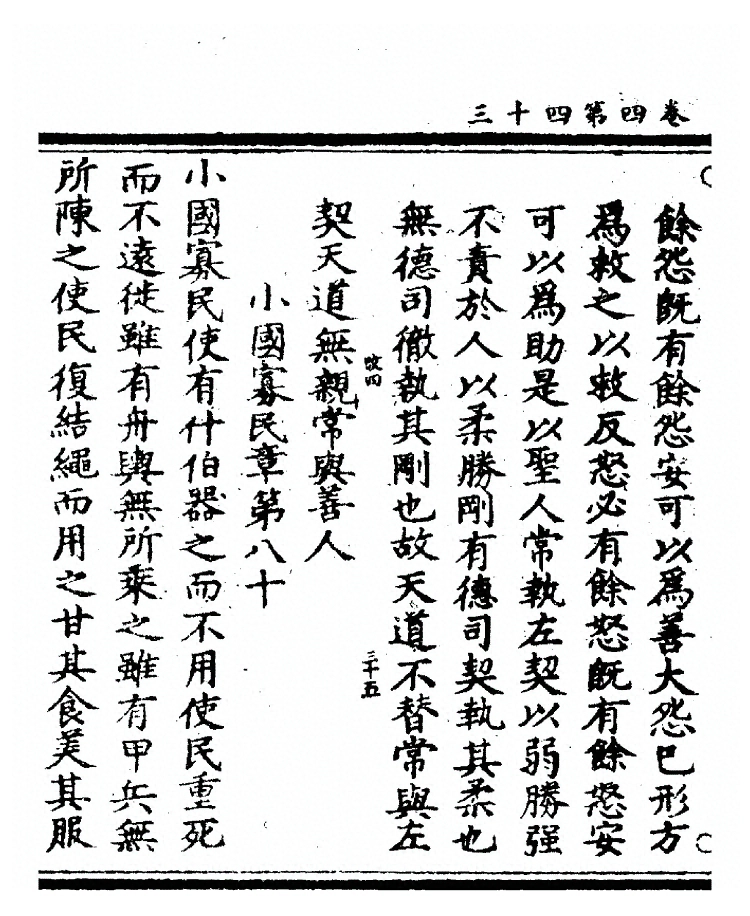 卷四第四十三
餘怨既有餘怨安可以爲善大怨已形方
爲救之以救反怒必有餘怒既有餘怒安
可以爲助是以聖人常執左契以弱勝强
不責於人以柔勝剛有德司契執其柔也
無德司徹執其剛也故天道不替常與左
改四
三十五
契天道無親常與善人
小國寡民章第八十
小國寡民使有什伯器之而不用使民重死
而不遠徙雖有舟輿無所乘之雖有甲兵無
所陳之使民復結繩而用之甘其食美其服